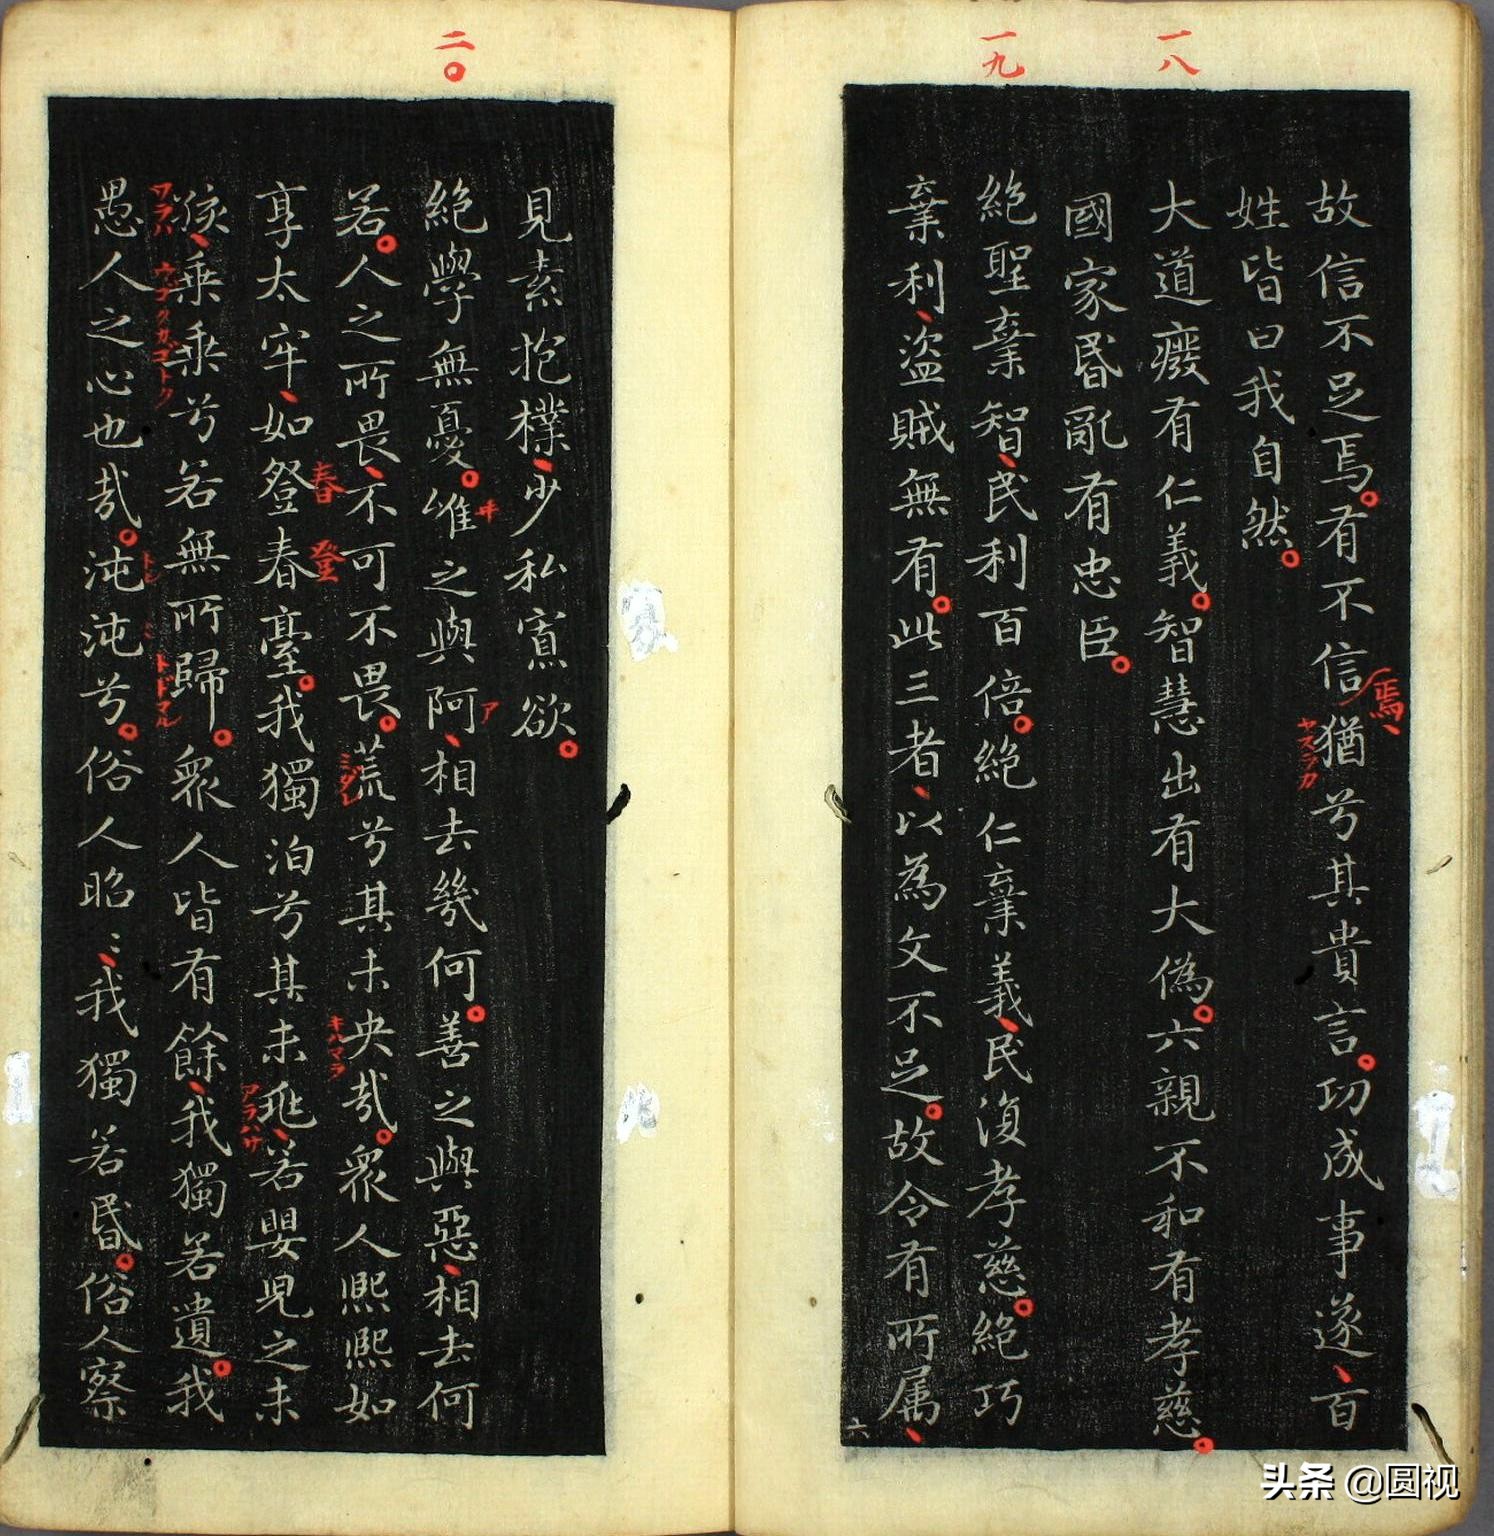 一八
一九
故信不足焉。有不信焉、猶兮其貴言。功成事遂、百
ヤスラカ
姓皆曰我自然。
大道癈有仁義。智慧出有大偽。六親不和有孝慈。
國家昬亂有忠臣。
絶聖棄智、民利百倍。絶仁棄義、民復孝慈。絶巧
棄利、盗賊無有。此三者、以為文不足。故令有所属、
六
二〇
見素抱樸、少私寡欲。
絶學無憂。唯之與阿、相去幾何。善之與惡、相去何
ア
若。人之所畏、不可不畏。荒兮其未央哉。衆人熙熙如
ミダレ
享太牢、如登春臺。我獨泊兮其未兆、若嬰兒之未
春 登
孩、乗乗兮若無所歸。衆人皆有餘、我獨若遺。我
トドマル
愚人之心也哉。沌沌兮。俗人昭〻、我獨若昬。俗人察
头条 @圆视